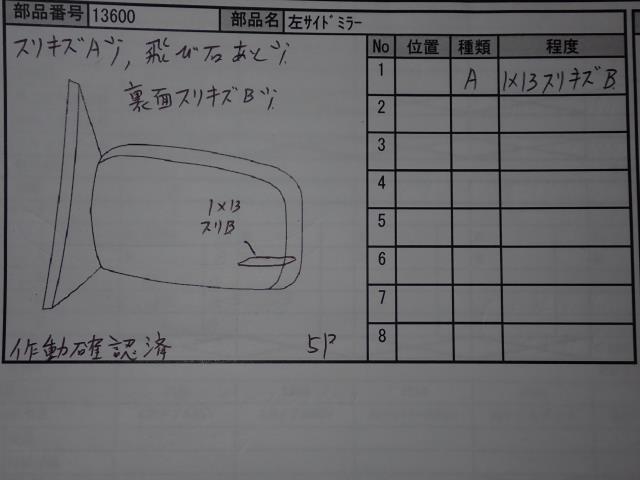 部品番号 13600 部品名 左サイドミラー
スリキズA〃, 飛び石あと〃
裏面スリキズB〃
1×13
スリB
作動確認済 5P
No 位置 種類 程度
1 A 1×13スリキズB
2
3
4
5
6
7
8